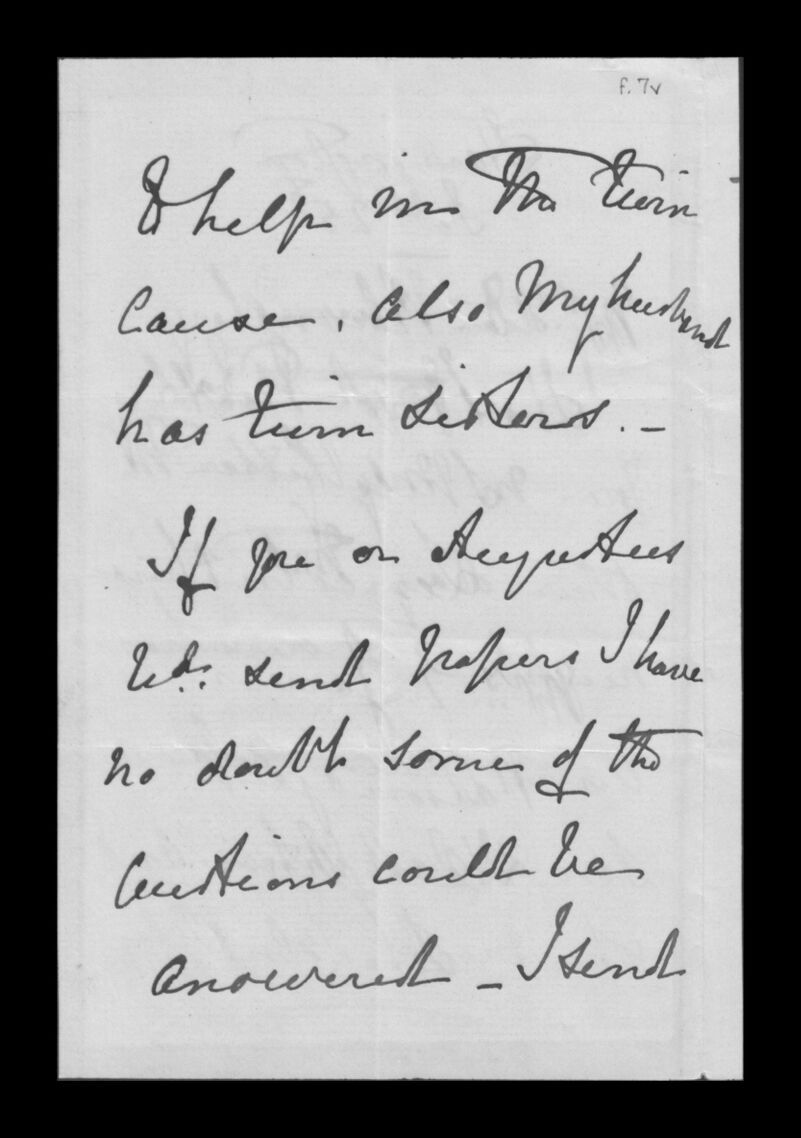 f. 7v
to help in the twin
cause, also My husband
has twin sisters. –
If you or Augustus
wd: send papers I have
no doubt some of the
Questions could be
answered – I send